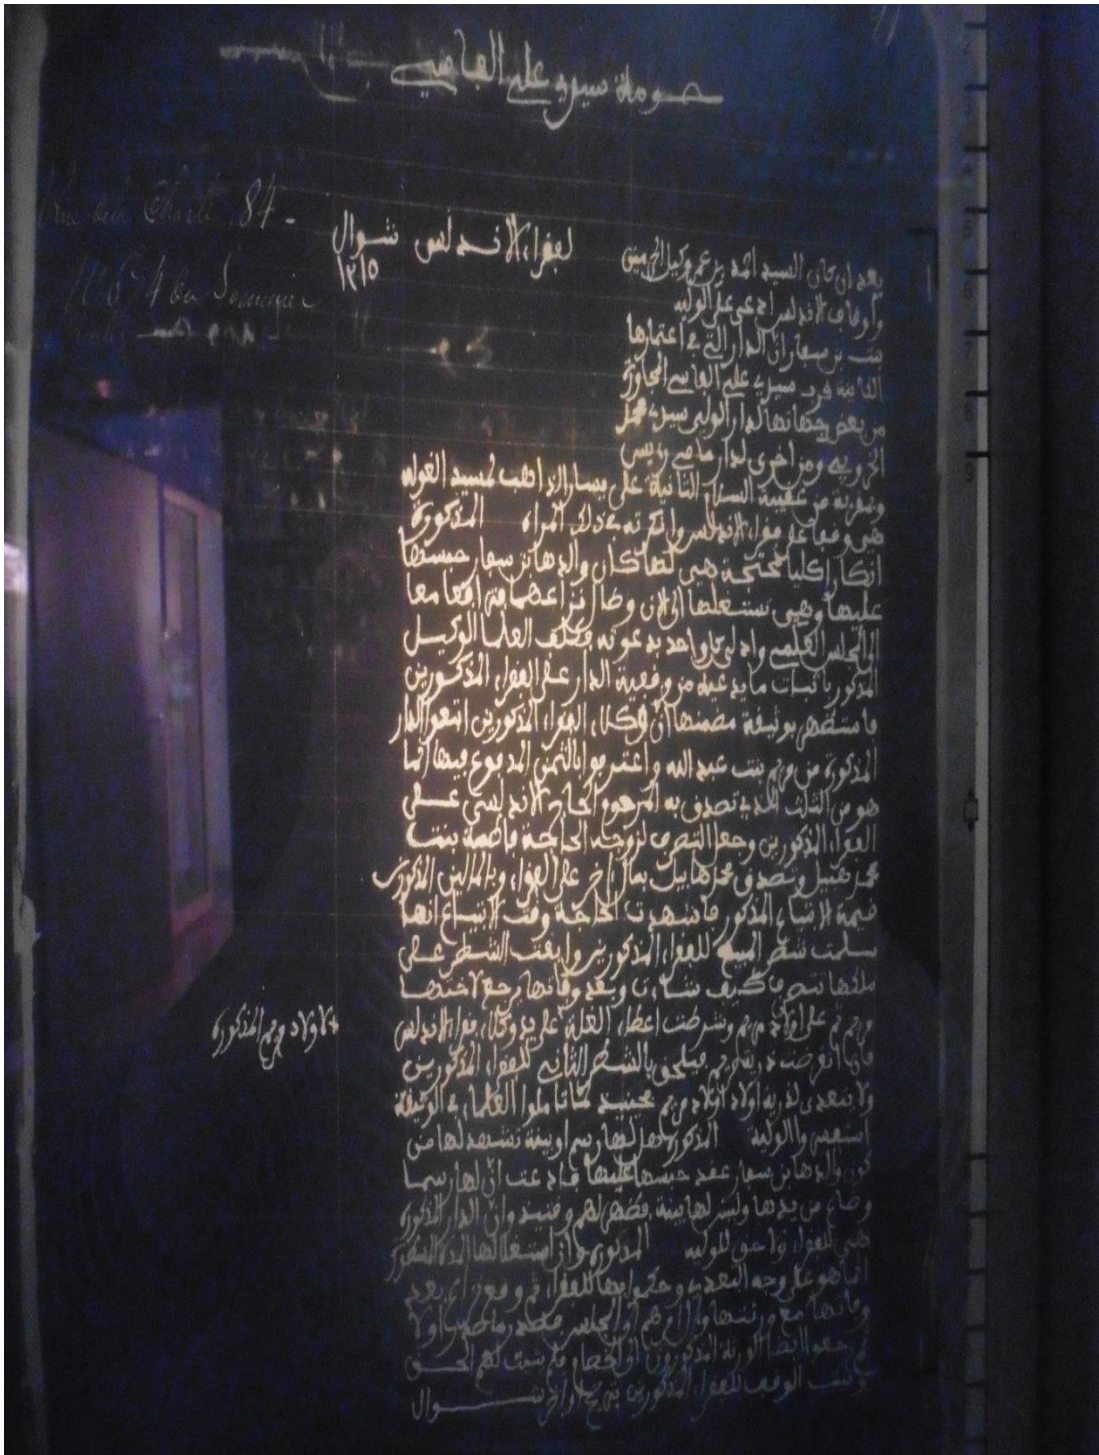 حومة سيدي علي الفاسي
Rue de la Charte 84 -
Nº 674 du Sommier
لفقراء الاندلس شوال
١٢١٥
بعد ان كان السيد احمد بن عمر وكيل الحرمين
واوقاف الاندلس ادعى على الولية
بنت بن سمار ان الدار التي في اعتمارها
الكاينة قرب سيدي علي الفاسي المجاورة
من بعض جهاتها لدار الولي سيدي محمد
ومن اخرى لدار مامي رايس
وبقربة من عقيبة السلام الثانية على يسار الذاهب لمسيد الغولة
هي وقفا على فقراء الاندلس وانكرته في ذلك المراة المذكورة
انكارا كليا محتجة هي لكونها كان والدها بن سمار حبسها
عليها وهي تستغلها الى الان وطال نزاعهما فترافعا معا
الى المجلس العلمي وادلى كل واحد بدعوته وكلف العلما الوكيل
المذكور باثبات ما يدعيه من وقفية الدار على الفقراء المذكورين
فاستظهر بوثيقة مضمنها ان وكلاء الفقراء المذكورين ابتعوا الدار
المذكورة من مريم بنت عبد الله واعترفوا بالثمن المدفوع فيها انما
هو من الثلث الذي تصدق به المرحوم الحاج الاندلسي على
الفقراء المذكورين وجعل التصرف لزوجه الحاجة فاطمة بنت
محمد وتصدق بمال اخر على الفقراء وبالمالين المذكورين
قيمة الابتياع المذكور فاشهدت الحاجة وقت الابتياع انها
سلمت شطر المبيع للفقراء المذكورين وابقت الشطر على
ملكها تتصرف كيف شاءت وبعد وفاتها يرجع لاختها
مريم ثم على اولاد مريم وشرطت اعطاء الغلة على يد وكلاء فقراء الاندلس
فاذا انقرضت ذرية مريم فيلحق بالشطر الثاني للفقراء المذكورين
لاولاد مريم المذكورة
ولا يتعدى لذرية اولاد اولاد مريم فحينيذ لما تاملوا العلماء في الوثيقة
استفهموا الولية المذكورة هل لها رسم او بينة تشهد لها من
كون والدها بن سمار عقد حبسها عليها فادعت ان لها رسما
وضاع من يدها وليس لها بينة فظهر لهم وقتيذ وان الدار المذكورة
هي للفقراء ولا حق للولية المذكورة وان استغلالها المدة المذكورة
انما هو على وجه التعدي وحكموا بها للفقراء ثم وقع نزاع بعد
وفاتها مع ورثتها وترافعهم الى المجلس فصدر ما صدر اولا
ثم رجعوا ايضا الورثة المذكورون الى الخصام فلم يثبت لهم الحق
وثبت الوقف للفقراء المذكورين بتاريخ اواخر شوال